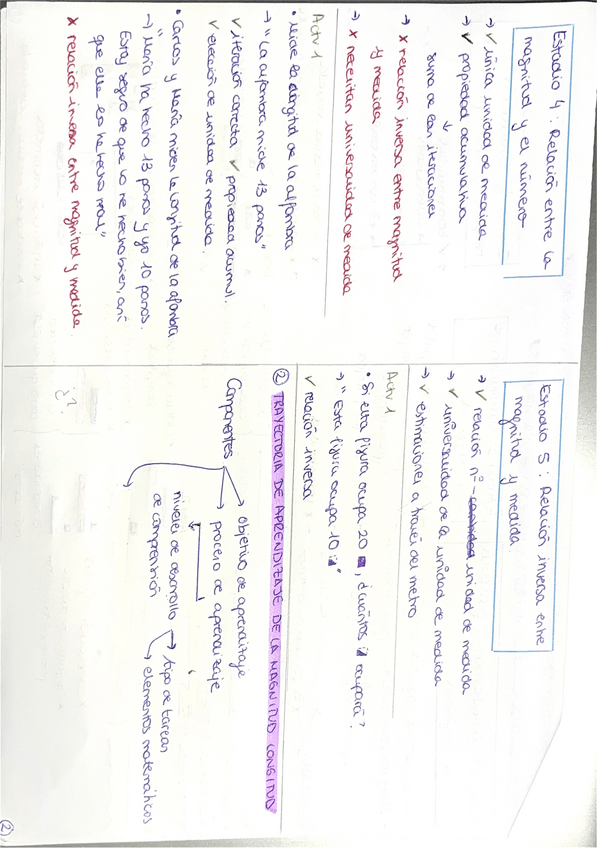 Estadio 4 : Relación entre la
magnitud y el número
→ ✓ única unidad de medida
→ ✓ propiedad acumulativa
↓
suma de las iteraciones
→ x relación inversa entre magnitud
y medida
→ x necesitan universalidad de medida
Actv 1
• Mide la longitud de la alfombra
→ "La alfombra mide 13 pasos"
✓ iteración correcta ✓ propiedad acumul.
✓ elección de unidad de medida.
• Carlos y María miden la longitud de la alfombra
→ "María ha hecho 13 pasos y yo 10 pasos.
Estoy seguro de que lo he hecho bien, así
que ella lo ha hecho mal"
x relación inversa entre magnitud y medida.
Estadio 5 : Relación inversa entre
magnitud y medida
→ ✓ relación nº - unidad de medida
→ ✓ universalidad de la unidad de medida
→ ✓ estimaciones a través del metro
Actv 1
• Si esta figura ocupa 20 , ¿cuántos ocupará?
→ "Esta figura ocupa 10 "
✓ relación inversa
② TRAYECTORIA DE APRENDIZAJE DE LA MAGNITUD LONGITUD
Componentes
→ objetivo de aprendizaje
→ proceso de aprendizaje
niveles de desarrollo
de comprensión
→ tipo de tareas
→ elementos matemáticos
¿?
②